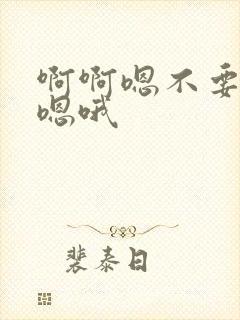 啊啊嗯不要
嗯哦
裴泰日